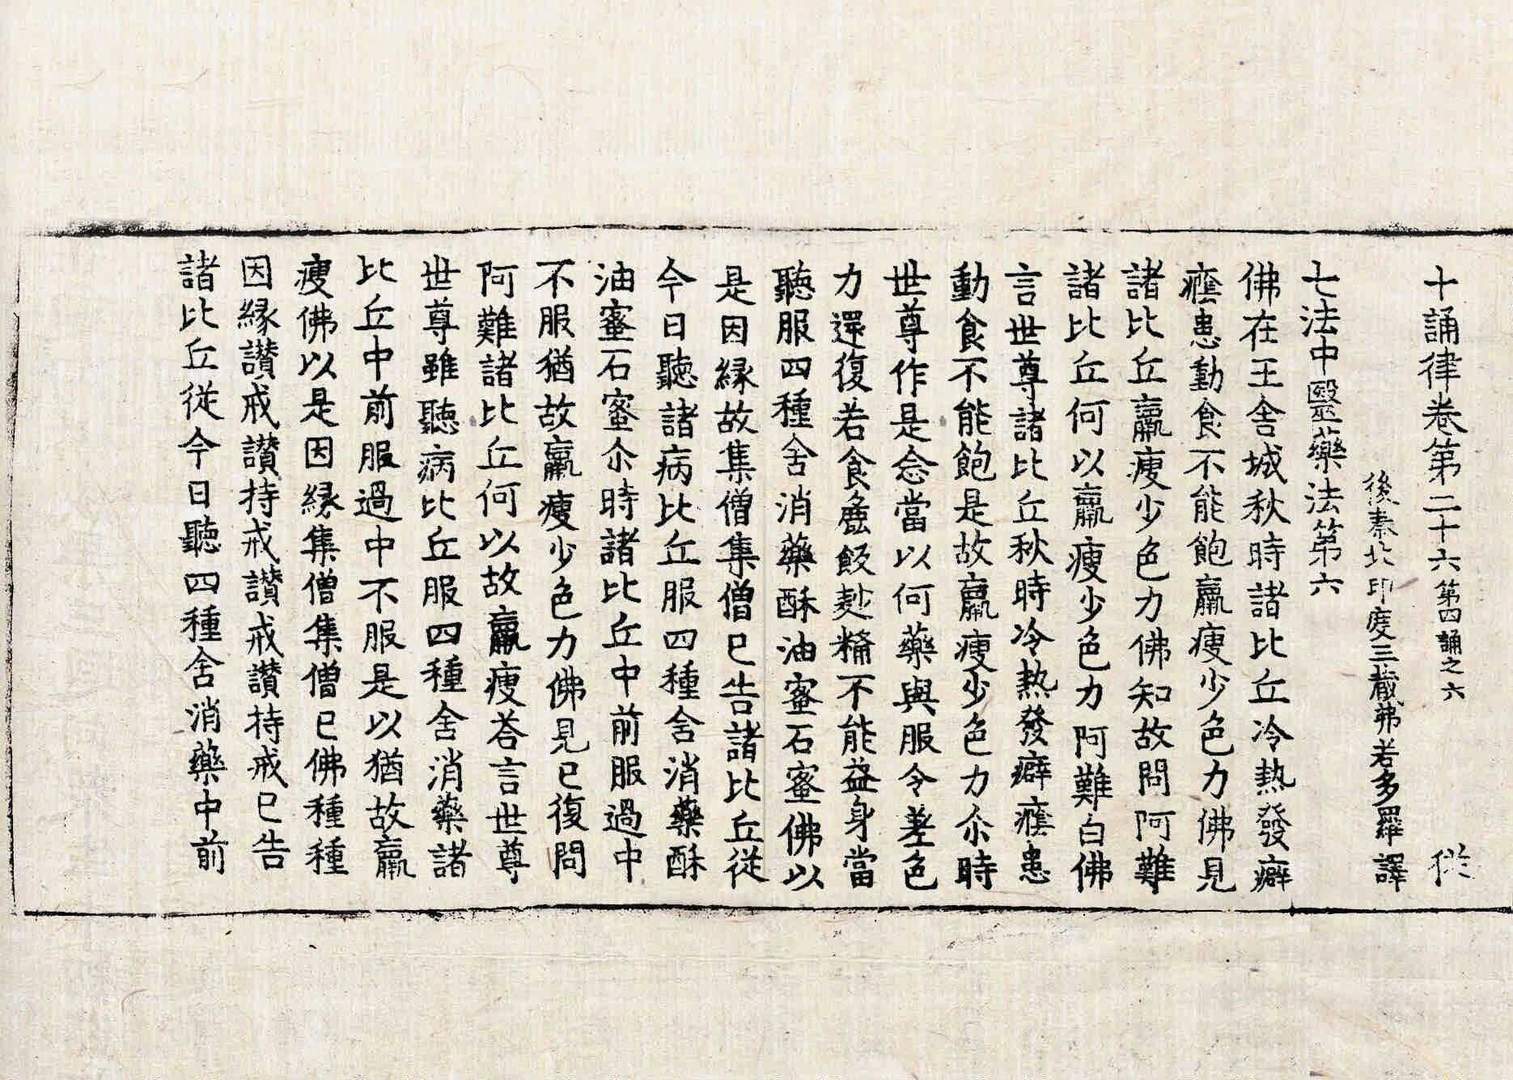 十誦律卷第二十六第四誦之六 從
後秦北印度三藏弗若多羅譯
七法中醫藥法第六
佛在王舍城秋時諸比丘冷熱發癖
癊患動食不能飽羸瘦少色力佛見
諸比丘羸瘦少色力佛知故問阿難
諸比丘何以羸瘦少色力阿難白佛
言世尊諸比丘秋時冷熱發癖癊患
動食不能飽是故羸瘦少色力尒時
世尊作是念當以何藥與服令差色
力還復若食麁飯麨糒不能益身當
聽服四種含消藥酥油蜜石蜜佛以
是因緣故集僧集僧已告諸比丘從
今日聽諸病比丘服四種含消藥酥
油蜜石蜜尒時諸比丘中前服過中
不服猶故羸瘦少色力佛見已復問
阿難諸比丘何以故羸瘦荅言世尊
世尊雖聽病比丘服四種含消藥諸
比丘中前服過中不服是以猶故羸
瘦佛以是因緣集僧集僧已佛種種
因緣讃戒讃持戒讃戒讃持戒已告
諸比丘從今日聽四種含消藥中前